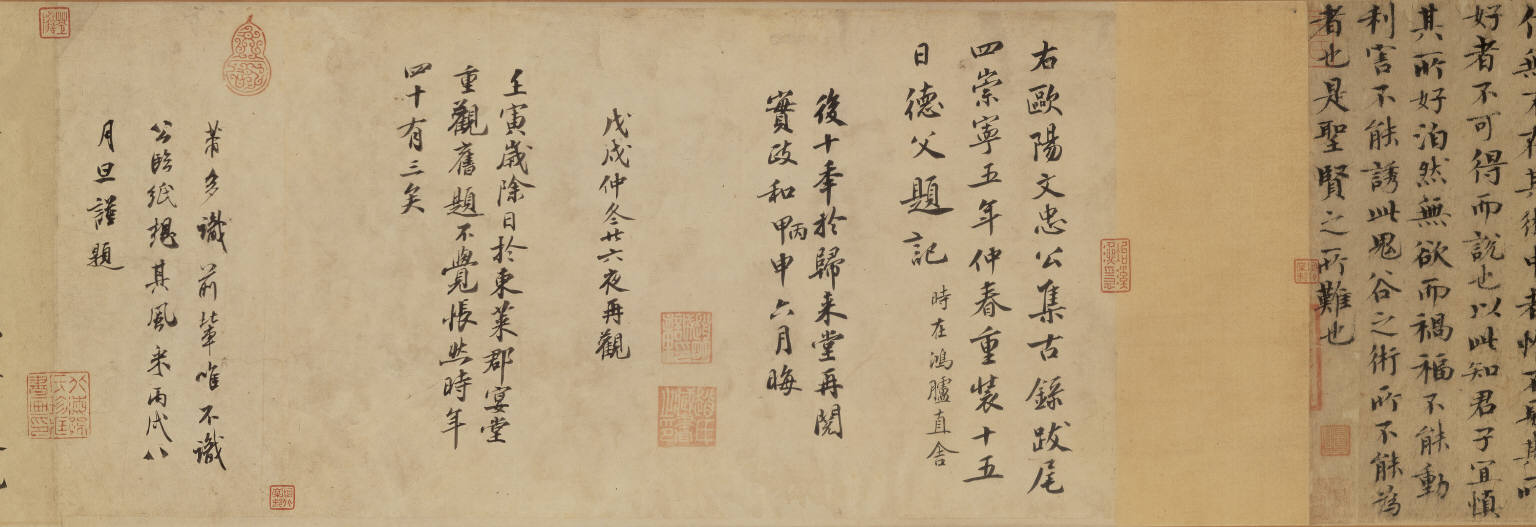 好者不可得而說也以此知君子宜慎
其所好泊然無欲而禍福不能動
利害不能誘此鬼谷之術所不能為
者也是聖賢之所難也
右歐陽文忠公集古錄跋尾
四崇寧五年仲春重裝十五
日德父題記 時在鴻臚直舍
後十年於歸来堂再閱
實政和甲丙申六月晦
戊戌仲冬廿六夜再觀
壬寅歲除日於東萊郡宴堂
重觀舊題不覺悵然時年
四十有三矣
莆多識前輩唯不識
公臨紙想其風采丙戌八
月旦謹題